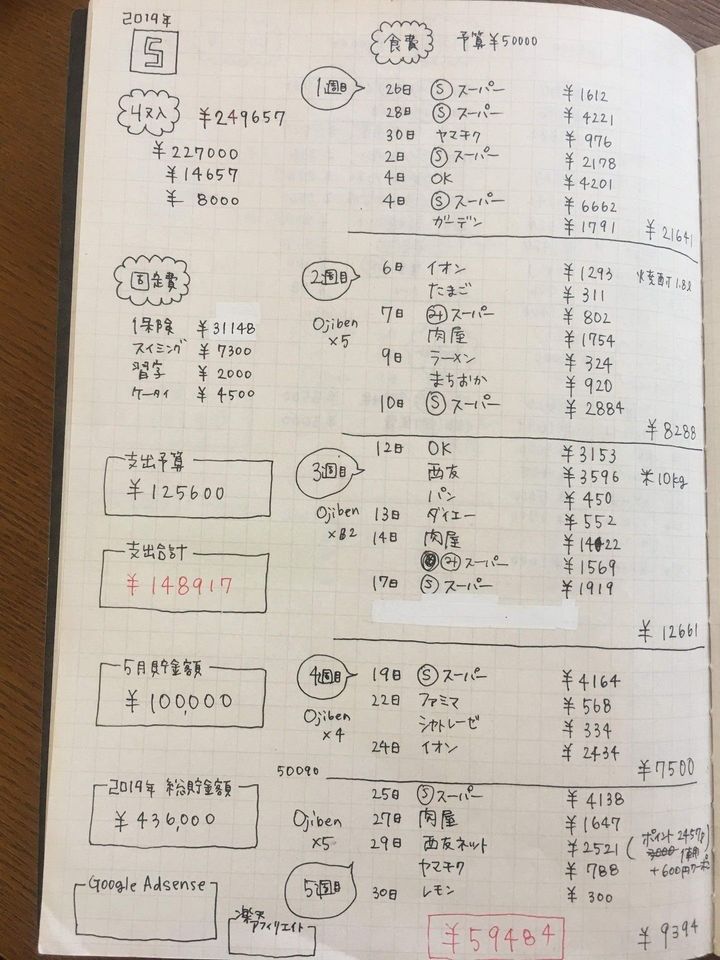 2019年
5
収入 ¥249657
¥227000
¥14657
¥ 8000
固定費
保険 ¥31148
スイミング ¥7300
習字 ¥2000
ケータイ ¥4500
支出予算
¥125600
支出合計
¥148917
5月貯金額
¥100,000
2019年 総貯金額
¥436,000
Google Adsense
楽天
アフィリエイト
食費 予算¥50000
1週目
26日 Ⓢスーパー ¥1612
28日 Ⓢスーパー ¥4221
30日 ヤマキク ¥976
2日 Ⓢスーパー ¥2178
4日 OK ¥4201
4日 Ⓢスーパー ¥6662
ガーデン ¥1791
¥21641
2週目
Ojiben
×5
6日 イオン ¥1293
たまご ¥311
7日 スーパー ¥802
肉屋 ¥1754
9日 ラーメン ¥324
まちおか ¥920
10日 Ⓢスーパー ¥2884
¥8288
3週目
Ojiben
12日 OK ¥3153
西友 ¥3596 米10kg
パン ¥450
13日 ダイエー ¥552
14日 肉屋 ¥1422
スーパー ¥1569
17日 Ⓢスーパー ¥1919
¥12661
4週目
Ojiben
×4
19日 Ⓢスーパー ¥4164
22日 ファミマ ¥568
シャトレーゼ ¥334
24日 イオン ¥2434
¥7500
50090
Ojiben
×5
5週目
25日 Ⓢスーパー ¥4138
27日 肉屋 ¥1647
29日 西友ネット ¥2521 (ポイント2457
使用
+600円クーポン)
ヤマキク ¥788
30日 レモン ¥300
¥59484
¥9394